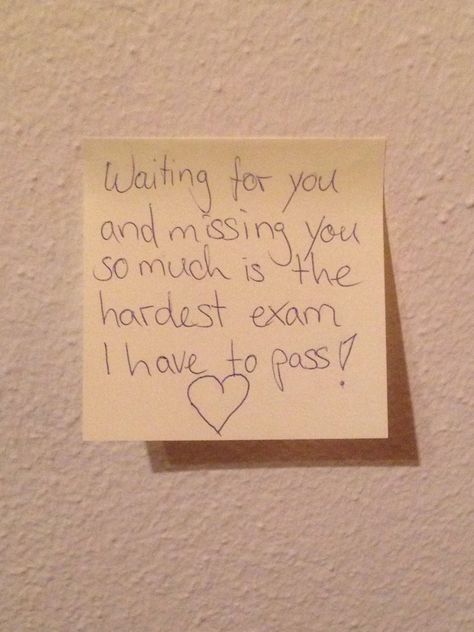 Waiting for you
and missing you
so much is the
hardest exam
I have to pass!